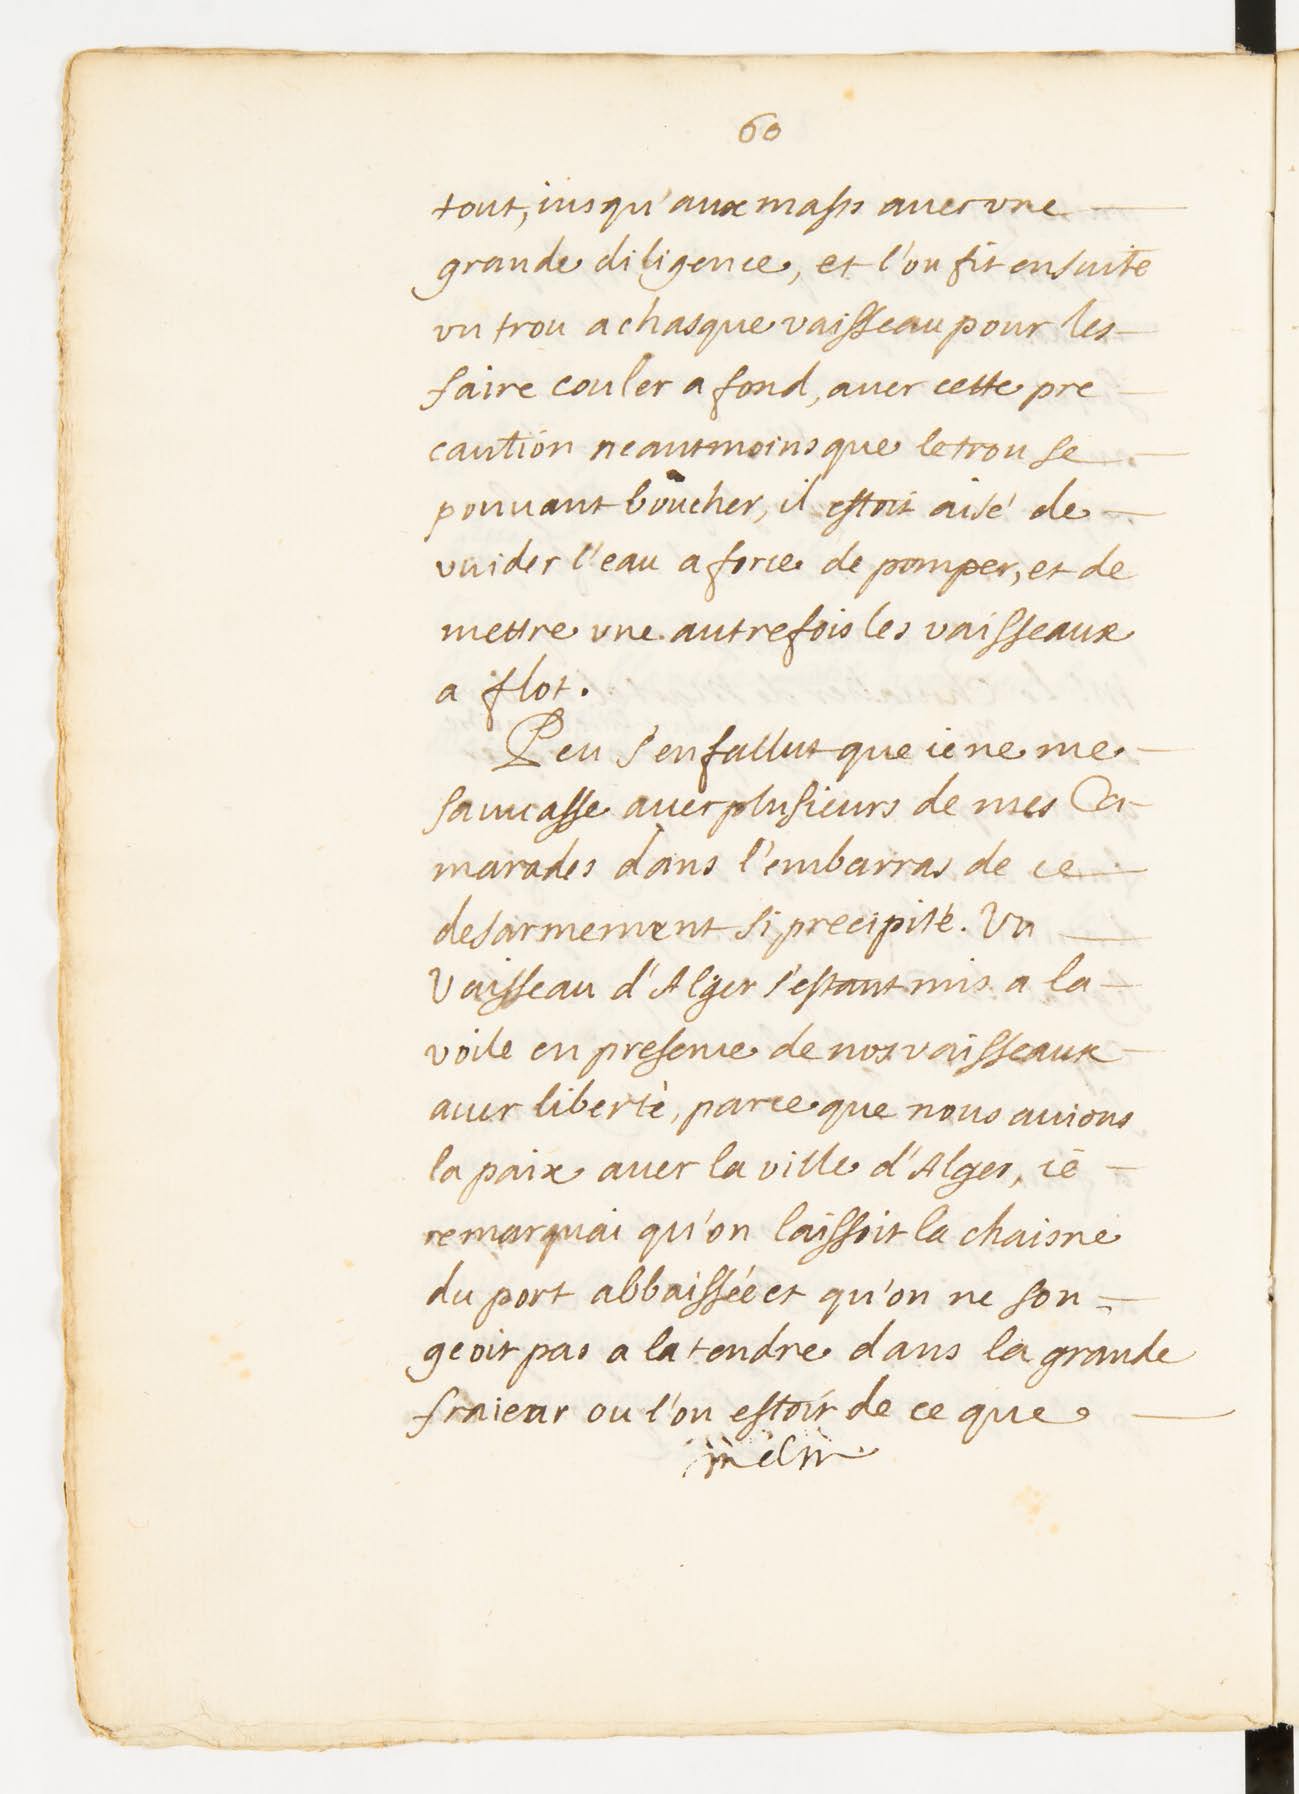 60
tout, iusqu'aux masts auec vne
grande diligence, et l'on fit ensuite
vn trou a chasque vaisseau pour les
faire couler a fond, auec cette pre
caution neantmoins que le trou se
pouuant boucher, il estoit aisé de
vuider l'eau a force de pomper, et de
mettre vne autrefois les vaisseaux
a flot.
Peu s'en fallut que ie ne me
sauuasse auec plusieurs de mes Ca-
marades dans l'embarras de ce
desarmement si precipité. Vn
Vaisseau d'Alger s'estant mis a la
voile en presence de nos vaisseaux
auec liberté, parce que nous auions
la paix auec la ville d'Alger, ie
remarquai qu'on laissoit la chaisne
du port abbaissée et qu'on ne son-
geoit pas a la tendre dans la grande
fraieur ou l'on estoit de ce que